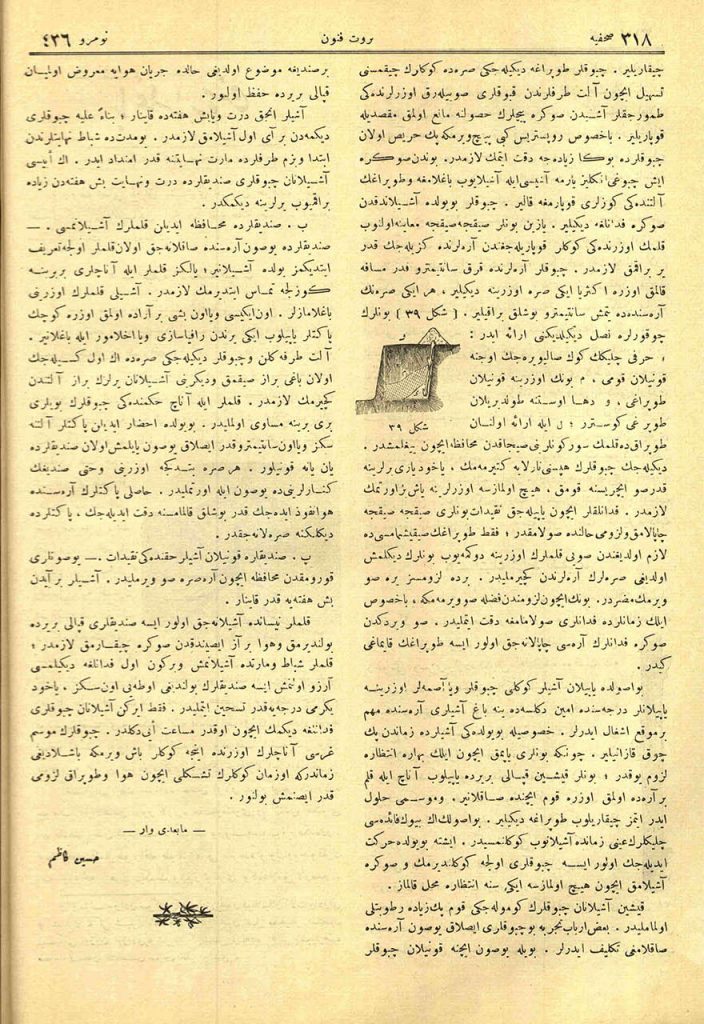 ٣١٨ صحفیه
ثروت فنون
نومرو ٤٣٦
چیقاریلیر. چبوقلر طوپراغه دیکیله‌جکی صره‌ده کوکلرك چیقمسنی
تسهیل ایچون آلت طرفلرندن قبوقلری صوییله‌رق اوزرلرنده‌کی
طمورجقلر آشیدن صوکره پیچلرك حصولنه مانع اولمق مقصدیله
قوپاریلیر. باخصوص روپستریس کبی پیچ ویرمکه پك حریص اولان
چبوقلرده بوکا زیاده‌جه دقت ایتمك لازمدر. بوندن صوکره
ایش چبوغی انکلیز یارمه آشیسی ایله آشیلایوب باغلامغه وطوپراغك
آلتنده‌کی کوزلری قوپارمغه قالیر. چبوقلر بویولده آشیلاندقدن
صوکره فدانلغه دیکیلیر. یازین بونلر صیقجه صیقجه معاینه اولنوب
قلمك اوزرنده‌کی کوکلر قوپاریله‌جغندن آره‌لرنده کزیله‌جك قدر
یر براقمق لازمدر. چبوقلر آره‌لرنده قرق سانتیمترو قدر مسافه
قالمق اوزره اکثریا ایکی صره اوزرینه دیکیلیر، هر ایکی صره‌نك
آره‌سنده‌ده یتمش سانتیمترو بوشلق براقیلیر. [ شکل ٣٩ ] بونلرك
چوقورلره نصل دیکیلدیکنی ارائه ایدر:
حرفی چلیکك كوك صالیویره‌جك اوجنه
قونیلان قومی، م بونك اوزرینه قونیلان
طوپراغی، و دها اوستنه طولدیریلان
طوپرغی کوسترر؛ ل ایله ارائه اولنان
شکل ٣٩
طوپراق‌ده قلمك سورکونلرینی صیجاقدن محافظه ایچون ییغلمشدر.
دیکیله‌جك چبوقلرك هپسنی تارلایه کتیرمه‌مك، یاخود یاری یرلرینه
قدر صو ایچریسنه قومق، هیچ اولمازسه اوزرلرینه یاش بز اورتمك
لازمدر. فدانلقلر ایچون یاپیله‌جق تقیدات بونلری صیقجه صیقجه
چاپالامق ولزومی حالنده صولامقدر؛ فقط طوپراغك صیقیشمامسی ده
لازم اولدیغندن صویی قلملرك اوزرینه دوکمه‌یوب بونلرك دیکلمش
اولدیغی صره‌لرك آره‌لرندن کچیرملیدر. برده لزومسز یره صو
ویرمك مضردر. بونك ایچون لزومندن فضله صو ویرمه‌مکه، باخصوص
ایلك زمانلرده فدانلری صولامامغه دقت ایتملیدر. صو ویردکدن
صوکره فدانلرك آره‌سی چاپالانه‌جق اولور ایسه طوپراغك قایماغی
کیدر.
بو اصولده یاپیلان آشیلر کوکلی چبوقلر ویا آصمه‌لر اوزرینه
یاپیلانلر درجه‌سنده امین دکلسه‌ده ینه باغ آشیلری آره‌سنده مهم
بر موقع اشغال ایدرلر. خصوصیله بویولده‌کی آشیلرده زماندن پك
چوق قازانیلیر. چونکه بونلری یاپمق ایچون ایلك بهاره انتظاره
لزوم یوقدر؛ بونلر قیشین قپالی بر یرده یاپیلوب آناج ایله قلم
بر آره‌ده اولمق اوزره قوم ایچنده صاقلانیر. و موسمی حلول
ایدر ایتمز چیقاریلوب طوپراغه دیکیلیر. بو اصولك اك بیوك فائده‌سی
چلیکلرك عینی زمانده آشیلانوب کوکلنمسیدر. ایشته بویولده حرکت
ایدیله‌جك اولور ایسه چبوقلری اولجه کوکلندیرمك و صوکره
آشیلامق ایچون هیچ اولمازسه ایکی سنه انتظاره محل قالماز.
قیشین آشیلانان چبوقلرك کوموله‌جکی قوم پك زیاده رطوبتلی
اولمالیدر. بعض ارباب تجربه بو چبوقلری ایصلاق یوصون آره‌سنده
صاقلامغی تکلیف ایدرلر. بویله یوصون ایچنه قونیلان چبوقلر
بر صندیغه موضوع اولدیغی حالده جریان هوایه معروض اولمیان
قپالی بر یرده حفظ اولنور.
آشیلر آنجق درت ویا بش هفته‌ده قاینار؛ بناءً علیه چبوقلری
دیکمه‌دن بر آی اول آشیلامق لازمدر. بو مدت‌ده شباط نهایتلرندن
ابتدا ویزم طرفلرده مارت نهایتنه قدر امتداد ایدر. اك اییسی
آشیلانان چبوقلری صندیقلرده درت ونهایت بش هفته‌دن زیاده
براقمیوب یرلرینه دیکمکدر.
ب. صندیقلرده محافظه ایدیلن قلملرك آشیلانمسی. —
صندیقلرده یوصون آره‌سنده صاقلانه‌جق اولان قلملر اولجه تعریف
ایتدیکمز یولده آشیلانیر؛ یالکز قلملر ایله آناچلری بربرینه
کوزلجه تماس ایتدیرمك لازمدر. آشیلی قلملرك اوزرینی
باغلامازلر. اون ایکیسی ویا اون بشی بر آراده اولمق اوزره کوچك
پاکتلر یاپیلوب ایکی یرندن رافیا سازی ویا اخلامور ایله باغلانیر.
آلت طرفه کلن وچبوقلر دیکیله‌جکی صره‌ده اك اول کسیله‌جك
اولان باغی براز صیقمق ودیکرینی آشیلانان یرلرك براز آلتندن
کچیرمك لازمدر. قلملر ایله آناج حکمنده‌کی چبوقلرك بویلری
بری برینه مساوی اولمالیدر. بویولده احضار ایدیلن پاکتلر آلتنه
سکز ویا اون سانتیمترو قدر ایصلاق یوصون یایلمش اولان صندیقلرده
یان یانه قونیلور. هر صره بتدکجه اوزرینی وحتی صندیغك
کنارلرینی ده یوصون ایله اورتملیدر. حاصلی پاکتلرك آره‌سنده
هوا نفوذ ایده‌جك قدر بوشلق قالمامسنه دقت ایدیله‌جك، پاکتلرده
دیکلکنه صره‌لانه‌جقدر.
پ. صندیقلره قونیلان آشیلر حقنده‌کی تقیدات. — یوصونلری
قورومقدن محافظه ایچون آره‌صره صو ویرملیدر. آشیلر بر آیدن
بش هفته‌یه قدر قاینار.
قلملر نیسانده آشیلانه‌جق اولور ایسه صندیقلری قپالی بر یرده
بولندیرمق وهوا براز ایصیندقدن صوکره چیقارمق لازمدر؛
قلملر شباط ومارتده آشیلانمش وبرکون اول فدانلغه دیکیلمسی
آرزو اولنمش ایسه صندیقلرك بولندیغی اوطه‌یی اون سکز. یاخود
یکرمی درجه‌یه قدر تسخین ایتملیدر. فقط ایرکن آشیلانان چبوقلری
فدانلغه دیکمك ایچون اوقدر مساعت ایی دکلدر. چبوقلرك موسم
غرسی آناچلرك اوزرنده اینجه کوکلر باش ویرمکه باشلادیغی
زماندرکه اوزمان کوکلرك تشکلی ایچون هوا وطوپراق لزومی
قدر ایصنمش بولنور.
— مابعدی وار —
حسین کاظم